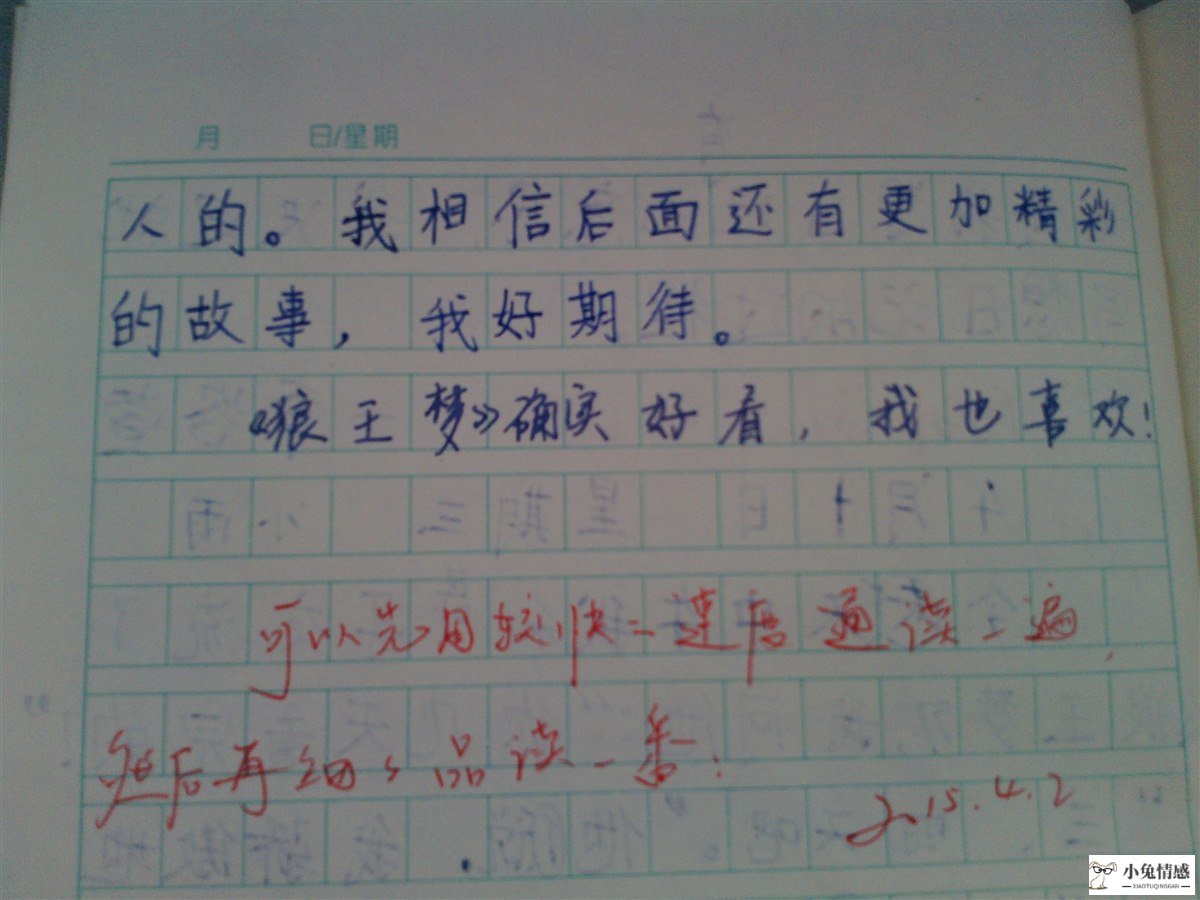 月 日/星期
人的。我相信后面还有更加精彩
的故事，我好期待。
《狼王梦》确实好看，我也喜欢！
可以先用较快的速度通读一遍，
然后再细细品读一番！
2015.4.2
小兔情感
XIAOTUQINGGAN